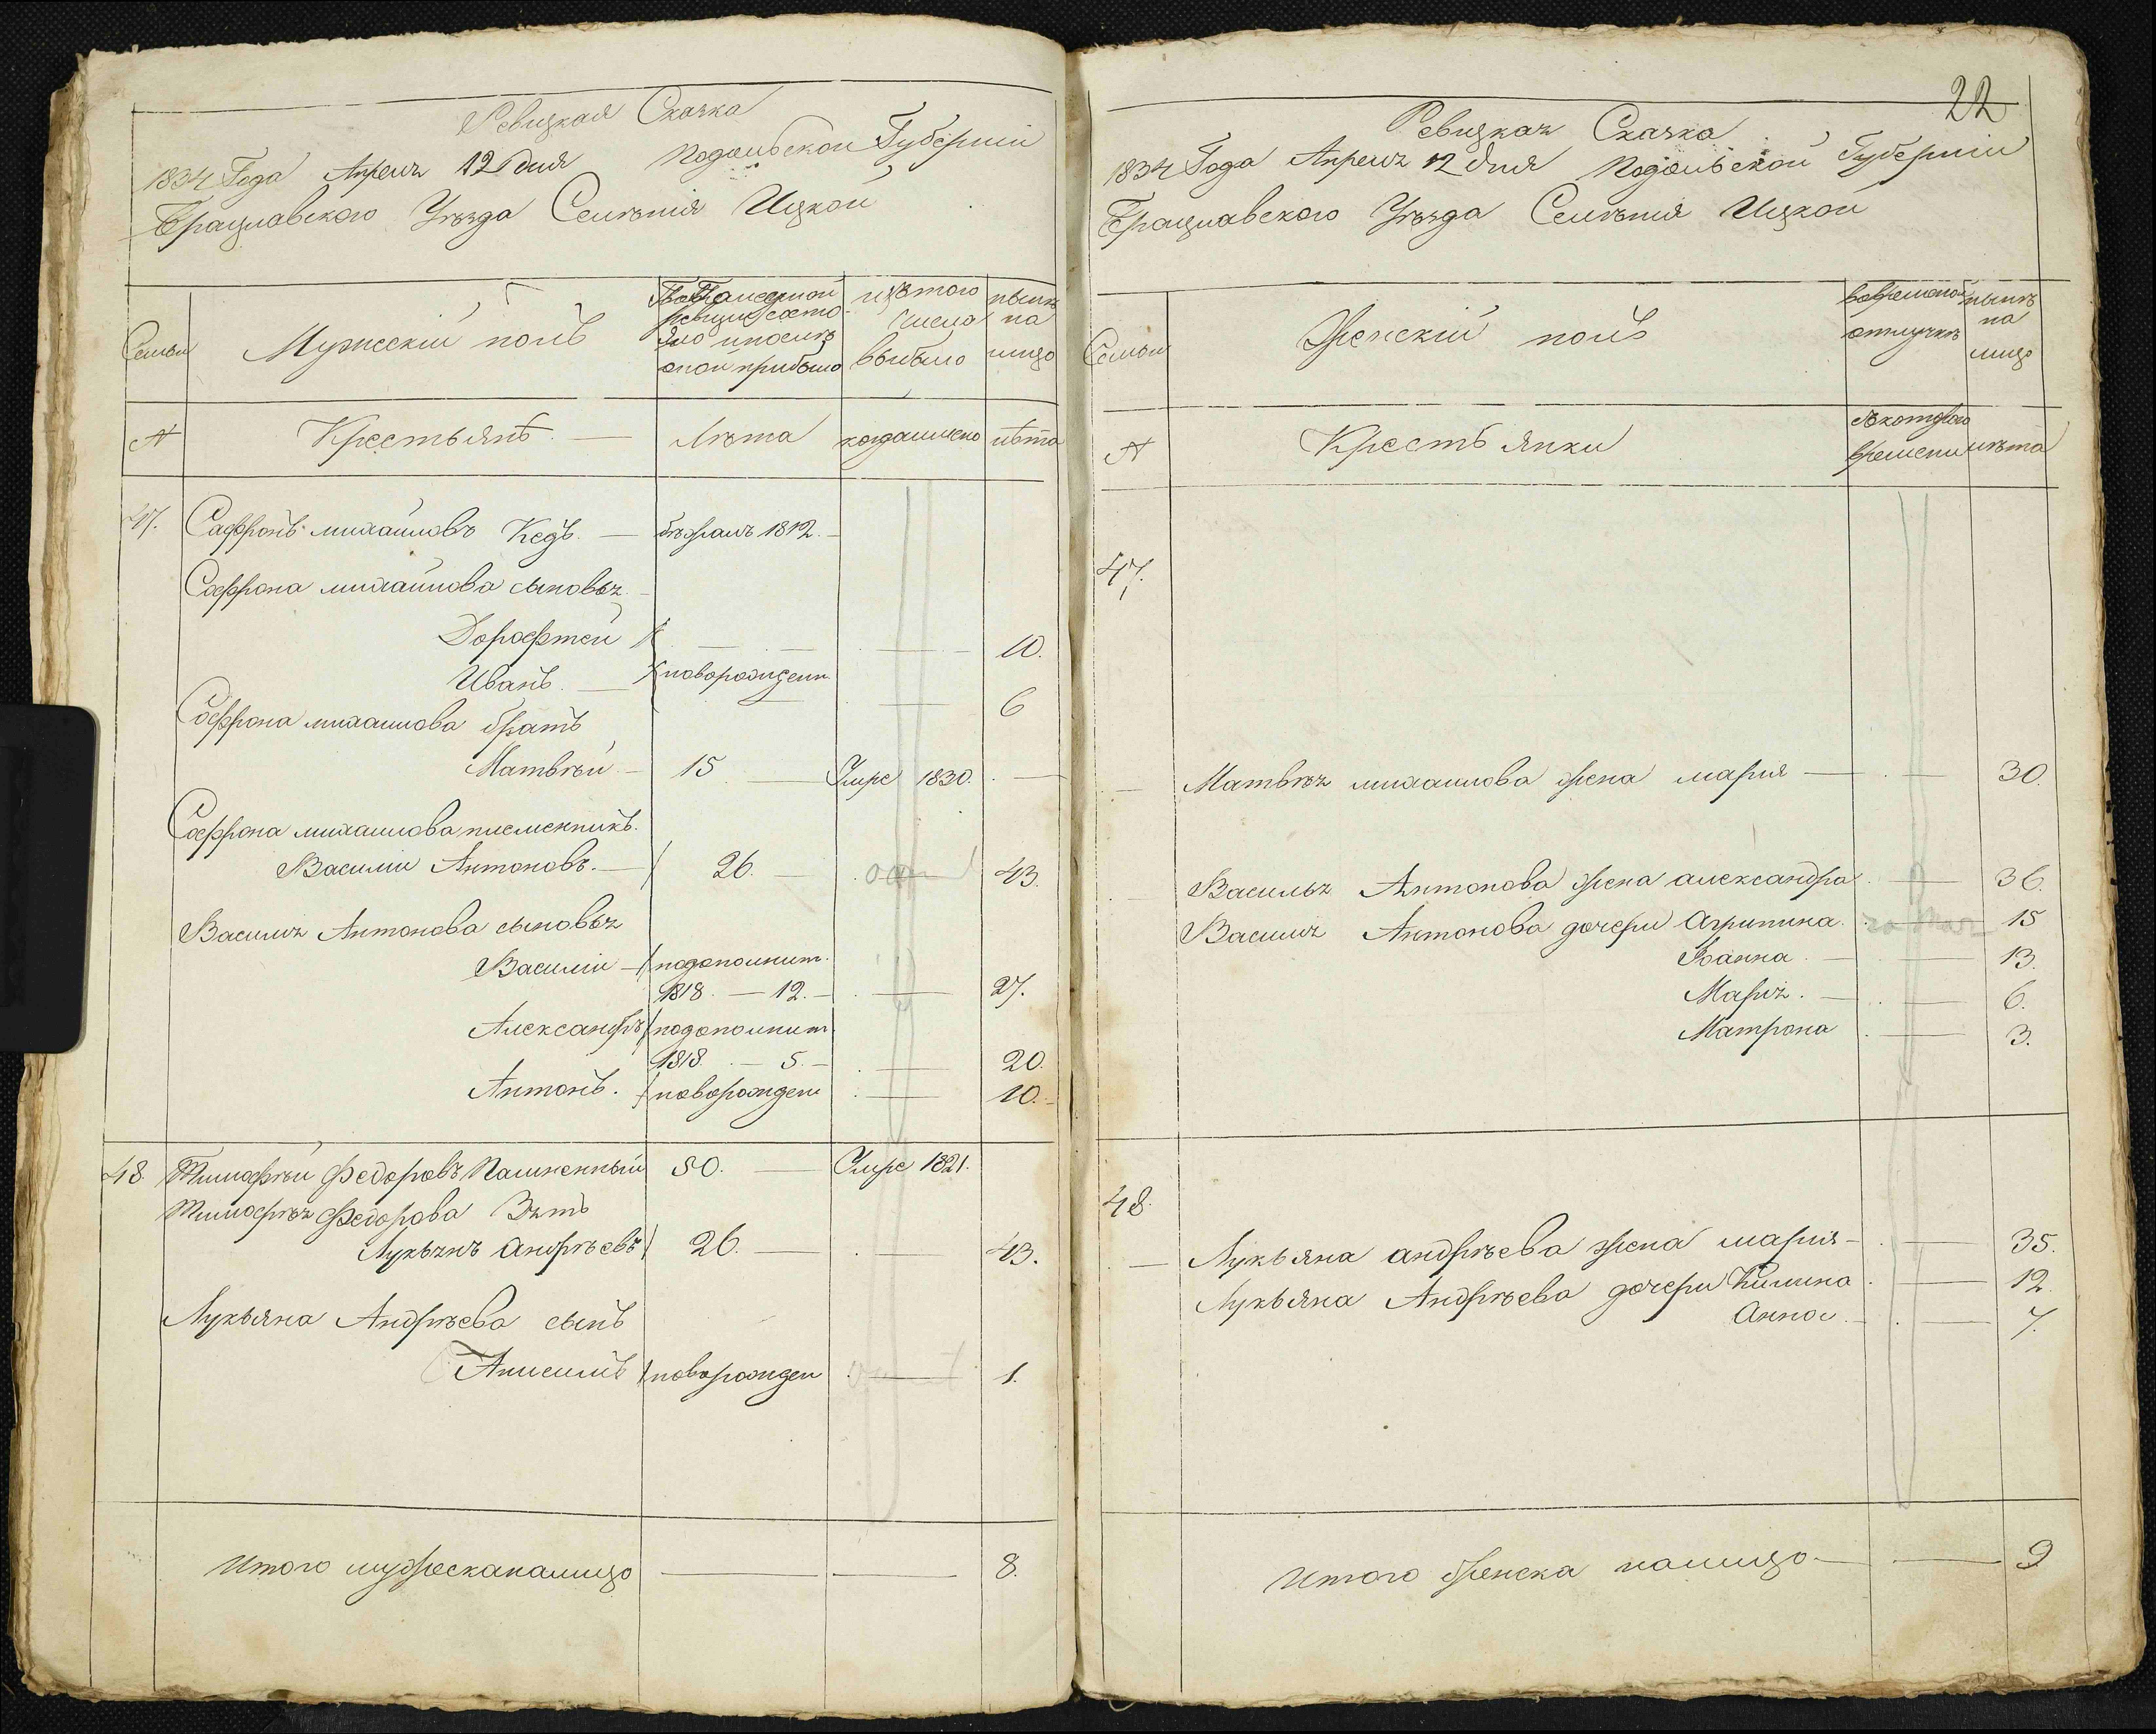 Ревизкая Сказка
1834 Года Апреля 12 дня Подольской Губернии
Брацлавского Уѣзда Селѣния Ицкой
Семьи
Мужескій полъ
По последней ревизии состояло и после оной прибыло
изъ того числа выбыло
нынѣ на лицо
№
Крестьянѣ.
Лѣта
когда имено
лѣта
47. Сафронъ михайловъ Кедъ. — бѣжалъ 1812.
Сафрона михайлова сыновья
Дорофтей — 10.
Иванъ. — новорожденн. — 6
Сафрона михаилова братъ
Матвѣй — 15 — Умре 1830. —
Сафрона михаилова племенникъ.
Василии Антоновъ. — 26. — 43.
Василия Антонова сыновья
Василии — подополнит.
1818. — 12. — 27.
Александръ подополнит
1818. — 5. — 20.
Антонъ. новорожден — 10.
48. Тимофѣй Федоровъ Памненный 50. — Умре 1821.
Тимофѣя Федорова Зять
Лукьянъ Андрѣевъ 26. — 43.
Лукьяна Андрѣева сынъ
Анисимъ новорожден — 1.
Итого мужеска налицо — 8.
22
Ревизкая Сказка
1834 Года Апреля 12 дня Подольской Губернии
Брацлавского Уѣзда Селѣния Ицкой
Семьи
Женскій полъ
во временной отлучкѣ
нынѣ на лицо
№
Крестьянки
съ которого времени
лѣта
47.
Матвѣя михаилова жена мария — 30.
Василья Антонова жена александра — 36.
Василия Антонова дочери Агрипина. — 15
Иоанна. — 13.
Мария. — 6.
Матрона — 3.
48.
Лукьяна андрѣева жена мария — 35.
Лукьяна Андрѣева дочери Килина — 12.
Анна — 7.
Итого Женска налицо — 9